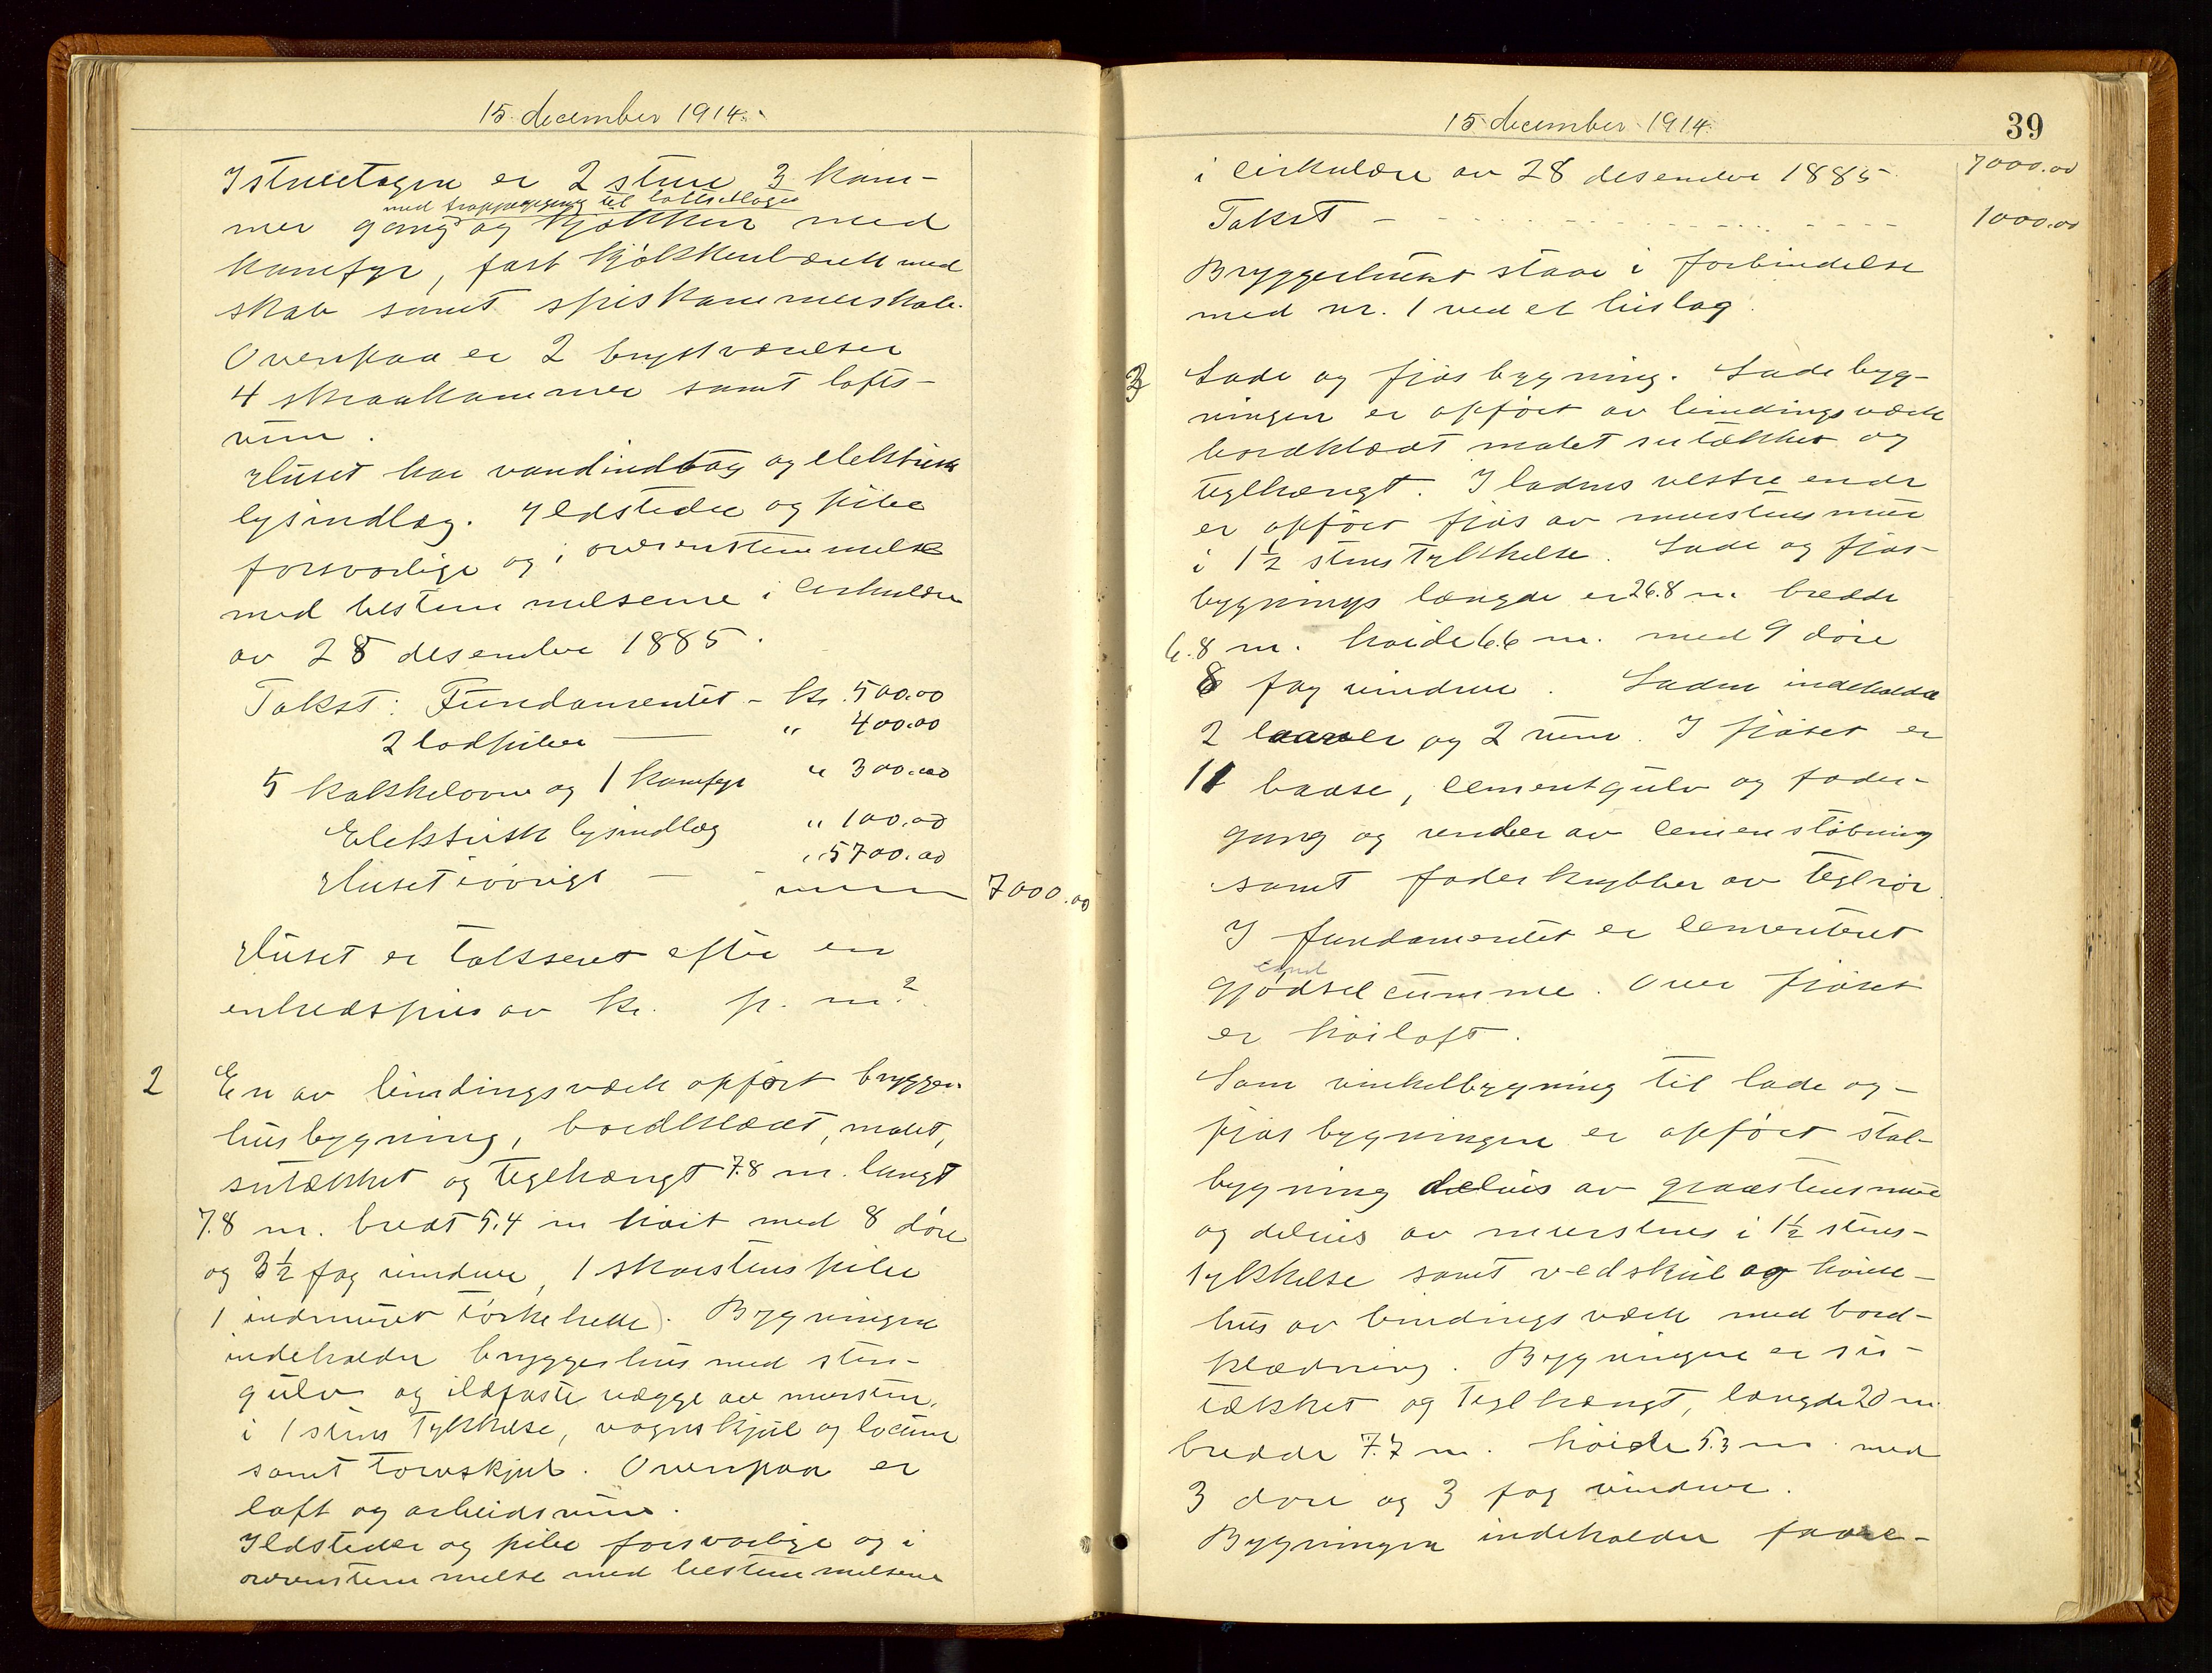 15 december 1914.
I stueetagen er 2 stuer 3 kam-
med trappeopgang til loftsetagen
mer gang og kjøkken med
komfyr, fast kjøkkenbænk med
skab samt spiskammerskab.
Ovenpaa er 2 brystværelser
4 skraakammer samt lofts-
rum.
Huset har vandindlag og elektrisk
lysindlæg. Ildsteder og piber
forsvarlige og i overenstemmelse
med bestemmelserne i cirkulære
av 28 desember 1885.
Takst: Fundamentet - kr. 500.00
2 lodpiber " 400.00
5 kakkelovne og 1 komfyr " 300.00
Elektrisk lysindlæg " 100.00
Huset iøvrigt - " 5700.00
7000.00
Huset er takseret efter en
enhedspris av kr. p. m².
2 En av bindingsværk opført brygger-
husbygning, bordklædt, malet,
sutækket og teglhængt 7.8 m. langt
7.8 m. bredt 5.4 m høit med 8 døre
og 3½ fag vinduer, 1 skorstenspibe
(1 indmuret tørkehelle). Bygningen
indeholder bryggerhus med sten-
gulv og ildfaste vægge av mursten
i 1 stens tykkelse, vognskjul og locum
samt torvskjul. Ovenpaa er
loft og arbeidsrum.
Ildsteder og pibe forsvarlige og i
overenstemmelse med bestemmelserne
15 december 1914.
39
i cirkulære av 28 desember 1885. 7000.00
Takst - 1000.00
Bryggerhuset staar i forbindelse
med nr. 1 ved et huslag.
3 Lade og fjøsbygning. Ladebyg-
ningen er opført av bindingsværk
bordklædt malet sutækket og
teglhængt. I ladens vestre ende
er opført fjøs av murstensmur
i 1½ stens tykkelse. Lade og fjøs-
bygnings længde er 26.8 m. bredde
6.8 m. høide 6.6 m. med 9 døre
8 fag vinduer. Laden indeholder
2 laaver og 2 rum. I fjøset er
11 baase, cementgulv og foder-
gang og render av cemenstøbning
samt foderkrybber av teglrør.
I fundamentet er cementeret
land
gjødselcumme. Over fjøset
er høiloft.
Som vinkelbygning til lade og-
fjøsbygningen er opført stal-
bygning delvis av graastensmur
og delvis av murstens i 1½ stens-
tykkelse samt vedskjul og hønse-
hus av bindingsværk med bord-
klædning. Bygningen er su-
tækket og teglhængt, længde 20 m
bredde 7.7 m. høide 5.3 m med
3 døre og 3 fag vinduer.
Bygningen indeholder faare-